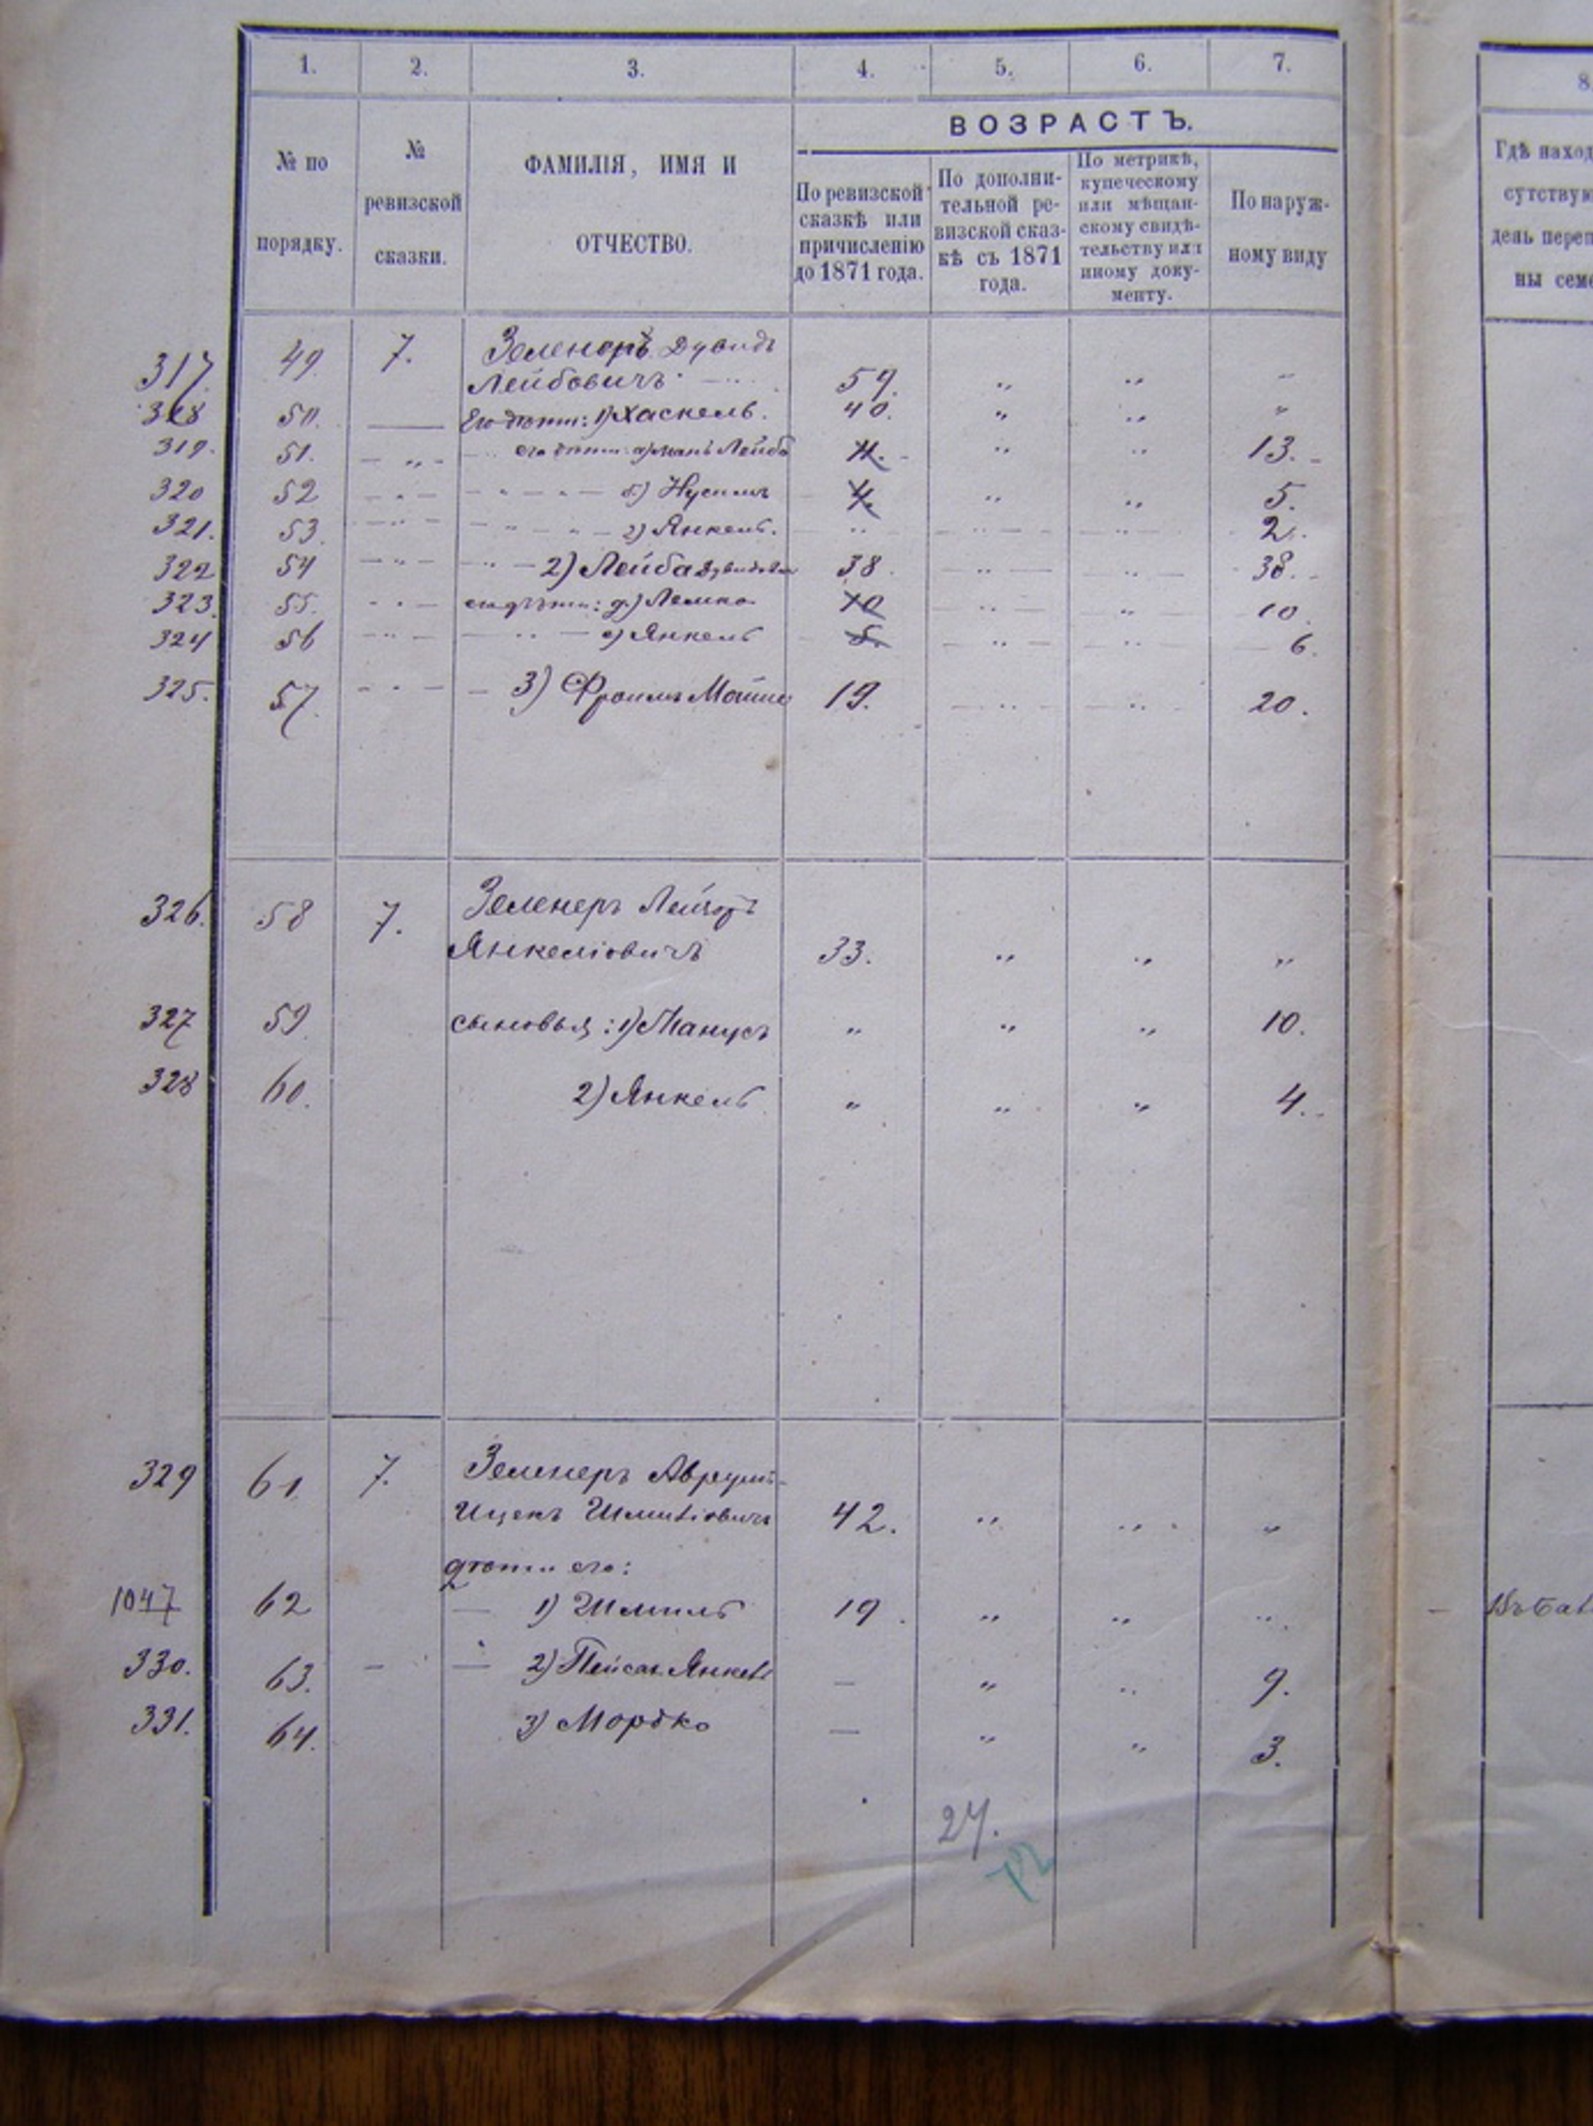 1. 2. 3. 4. 5. 6. 7.
8
ВОЗРАСТЪ.
№ по порядку.
№ ревизской сказки.
ФАМИЛІЯ, ИМЯ И ОТЧЕСТВО.
По ревизской сказкѣ или причисленію до 1871 года.
По дополнительной ревизской сказкѣ съ 1871 года.
По метрикѣ, купеческому или мѣщанскому свидѣтельству или иному документу.
По наружному виду
Гдѣ наход
сутствую
день переп
ны семе
317 49. 7. Зеленеръ Дувидъ
Лейбовичъ 59. „ „ „
318 50. Его дѣти: 1) Хаскель. 40. „ „ „
319. 51. „ его дѣти: а) Лейба 11. „ „ 13.
320 52 „ „ „ б) Нусимъ 4. „ „ 5.
321. 53. „ „ „ в) Янкель. „ „ „ 2.
322 54 „ „ 2) Лейба Дувидов 38. „ „ 38.
323. 55. „ его дѣти: д) Лемко 10 „ „ 10.
324 56 „ „ е) Янкель 5. „ „ 6.
325. 57. „ 3) Фроимъ Мошко 19. „ „ 20.
326. 58 7. Зеленеръ Лейзоръ
Янкеліовичъ 33. „ „ „
327 59. сыновья: 1) Манусъ „ „ „ 10.
328 60. 2) Янкель „ „ „ 4.
329 61. 7. Зеленеръ Аврумъ-
Ицекъ Шмиліовичъ 42. „ „ „
дѣти его:
1047 62 — 1) Шмиль 19. „ „ „
330. 63. — — 2) Пейсах Янкель — „ „ 9.
331. 64. 3) Мордко — „ „ 3.
24.